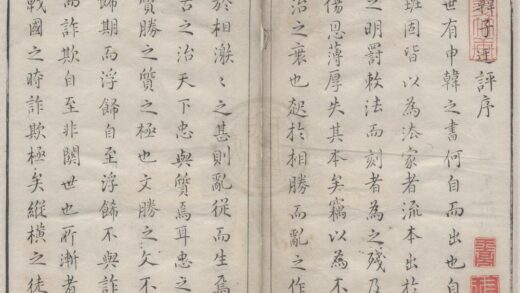 韓子迂評序
世有申韓之書何自而出也自
班固皆以為法家者流本出於
之明罰敕法而刻者為之殘乃
傷恩薄厚失其本矣竊以為不
治之衰也起於相勝而亂之作
於相激〻之甚則亂從而生焉
古之治天下忠與質焉耳忠之
質勝之質之極也文勝之文不
飾期而浮飾自至浮飾不與詐
而詐欺自至非關世也所漸者
戰國之時詐欺極矣縱橫之徒